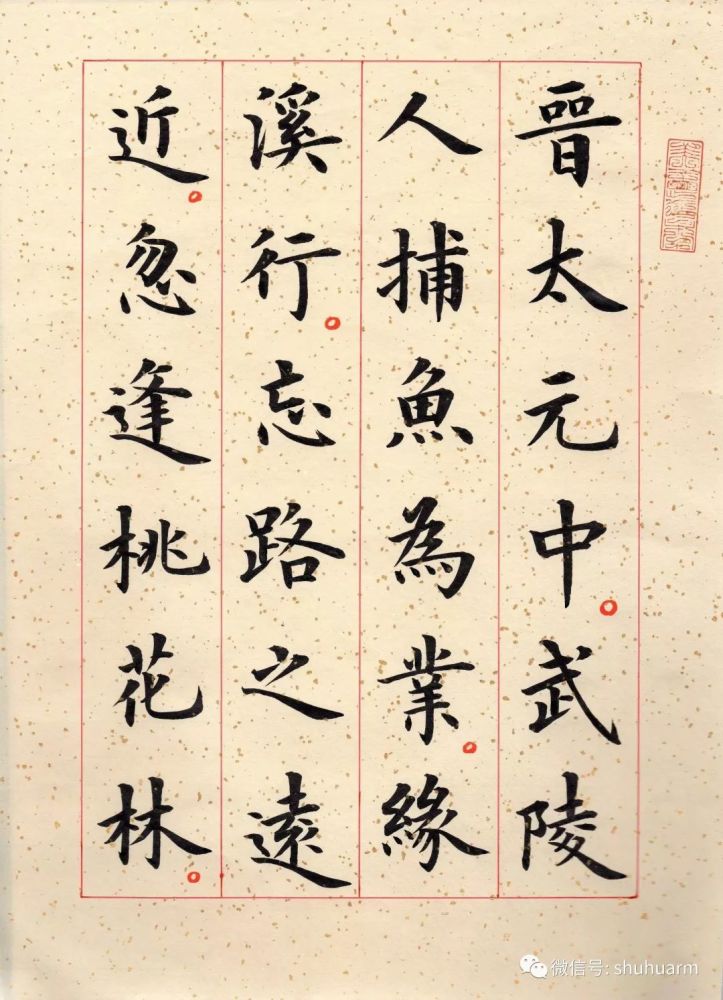 晉太元中。武陵
人捕魚為業。緣
溪行。忘路之遠
近。忽逢桃花林。
微信号: shuhuarm